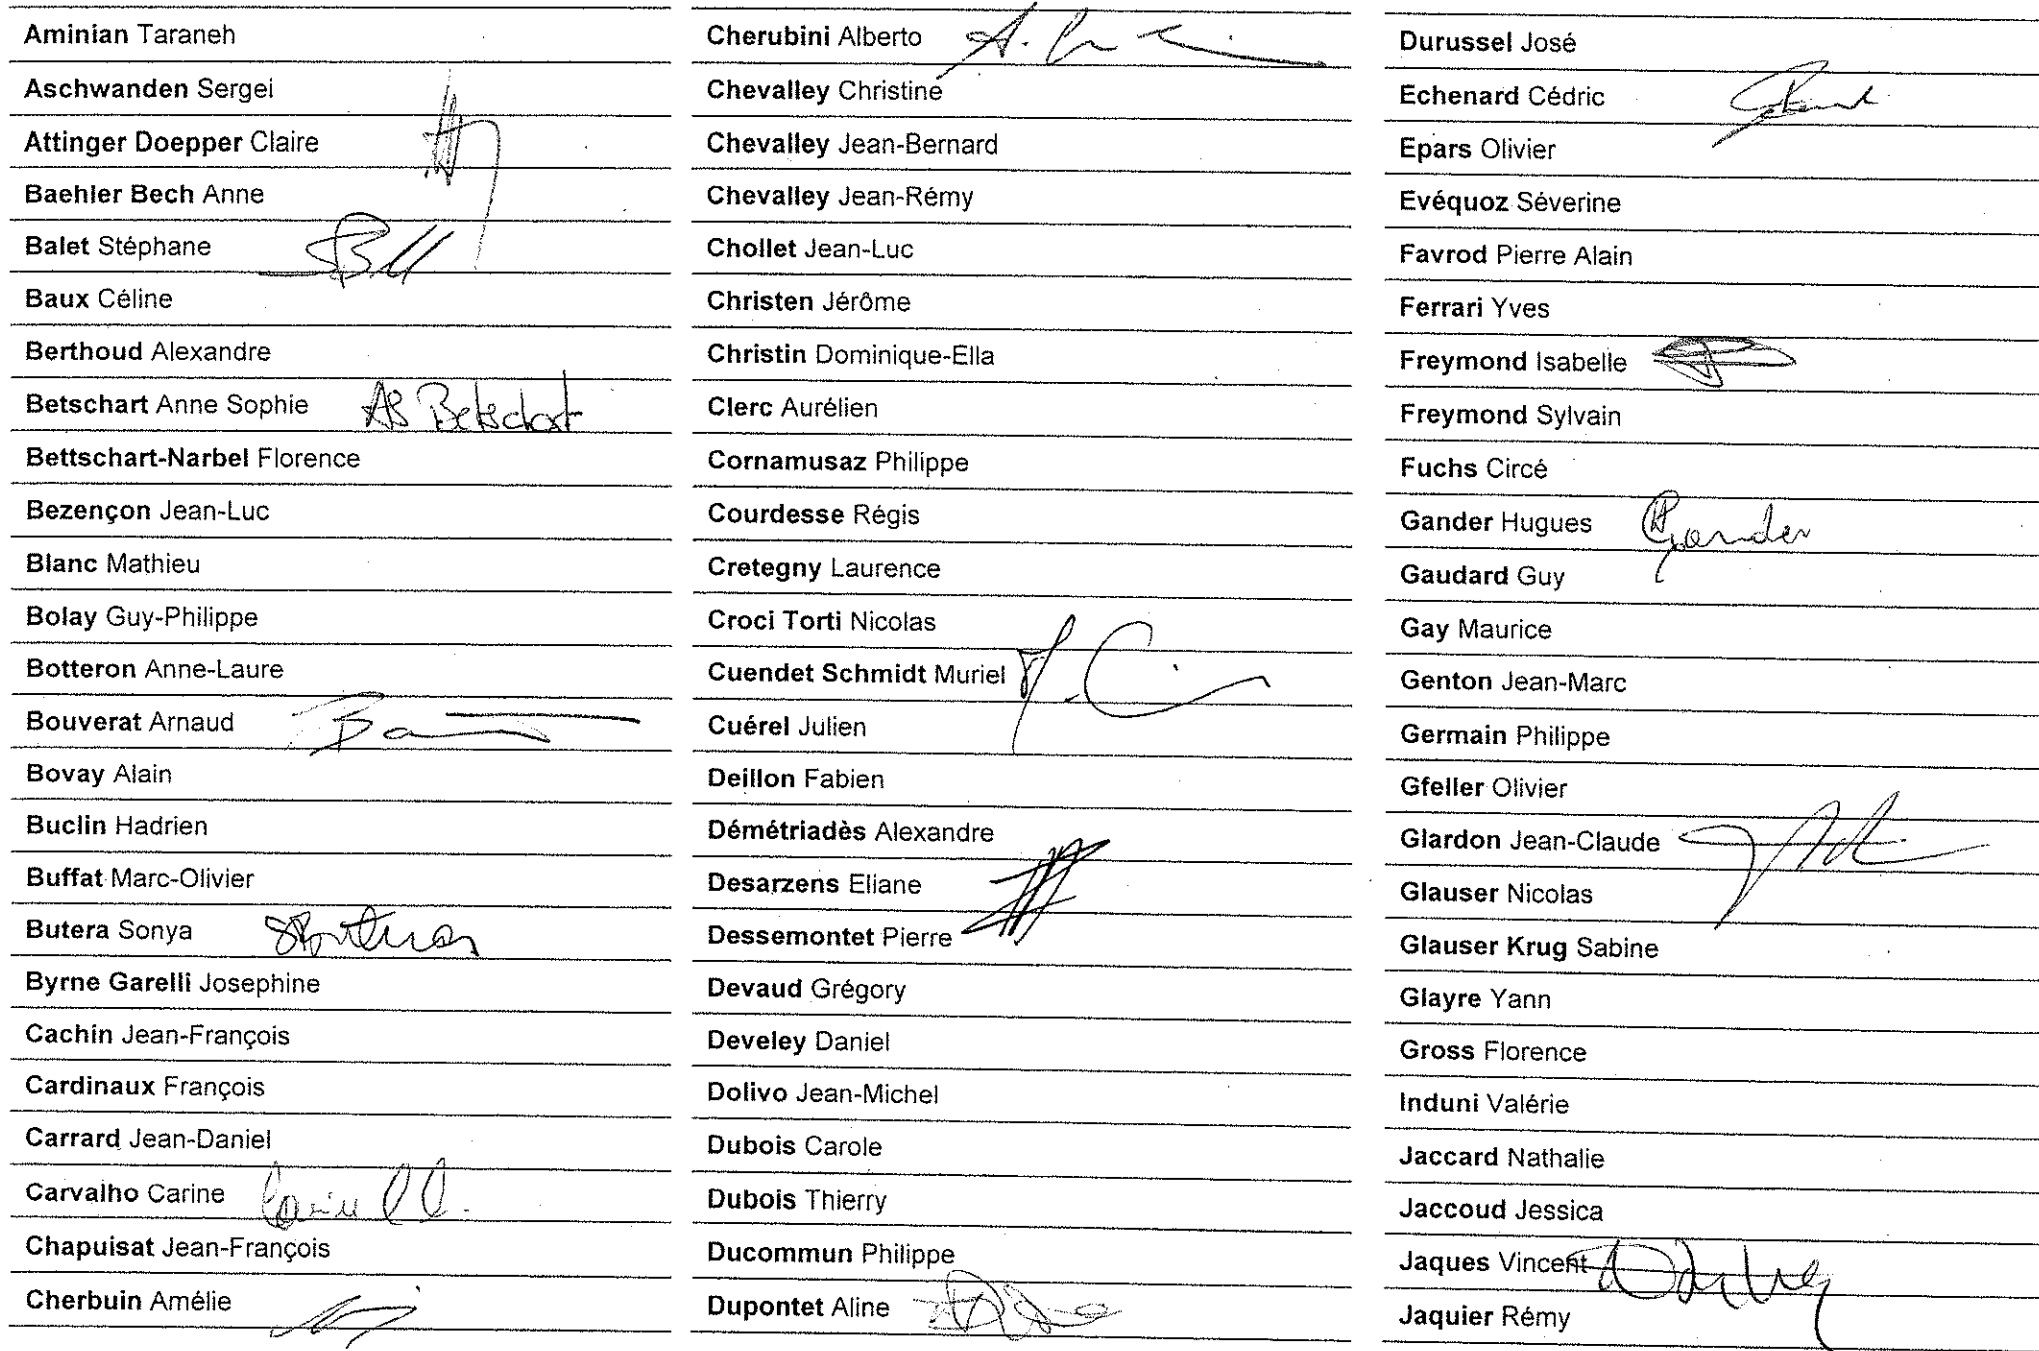 Aminian Taraneh
Aschwanden Sergei
Attinger Doepper Claire
Baehler Bech Anne
Balet Stéphane
Baux Céline
Berthoud Alexandre
Betschart Anne Sophie AS Betschart
Bettschart-Narbel Florence
Bezençon Jean-Luc
Blanc Mathieu
Bolay Guy-Philippe
Botteron Anne-Laure
Bouverat Arnaud
Bovay Alain
Buclin Hadrien
Buffat Marc-Olivier
Butera Sonya
Byrne Garelli Josephine
Cachin Jean-François
Cardinaux François
Carrard Jean-Daniel
Carvalho Carine
Chapuisat Jean-François
Cherbuin Amélie
Cherubini Alberto
Chevalley Christine
Chevalley Jean-Bernard
Chevalley Jean-Rémy
Chollet Jean-Luc
Christen Jérôme
Christin Dominique-Ella
Clerc Aurélien
Cornamusaz Philippe
Courdesse Régis
Cretegny Laurence
Croci Torti Nicolas
Cuendet Schmidt Muriel
Cuérel Julien
Deillon Fabien
Démétriadès Alexandre
Desarzens Eliane
Dessemontet Pierre
Devaud Grégory
Develey Daniel
Dolivo Jean-Michel
Dubois Carole
Dubois Thierry
Ducommun Philippe
Dupontet Aline
Durussel José
Echenard Cédric
Epars Olivier
Evéquoz Séverine
Favrod Pierre Alain
Ferrari Yves
Freymond Isabelle
Freymond Sylvain
Fuchs Circé
Gander Hugues Gander
Gaudard Guy
Gay Maurice
Genton Jean-Marc
Germain Philippe
Gfeller Olivier
Glardon Jean-Claude
Glauser Nicolas
Glauser Krug Sabine
Glayre Yann
Gross Florence
Induni Valérie
Jaccard Nathalie
Jaccoud Jessica
Jaques Vincent
Jaquier Rémy